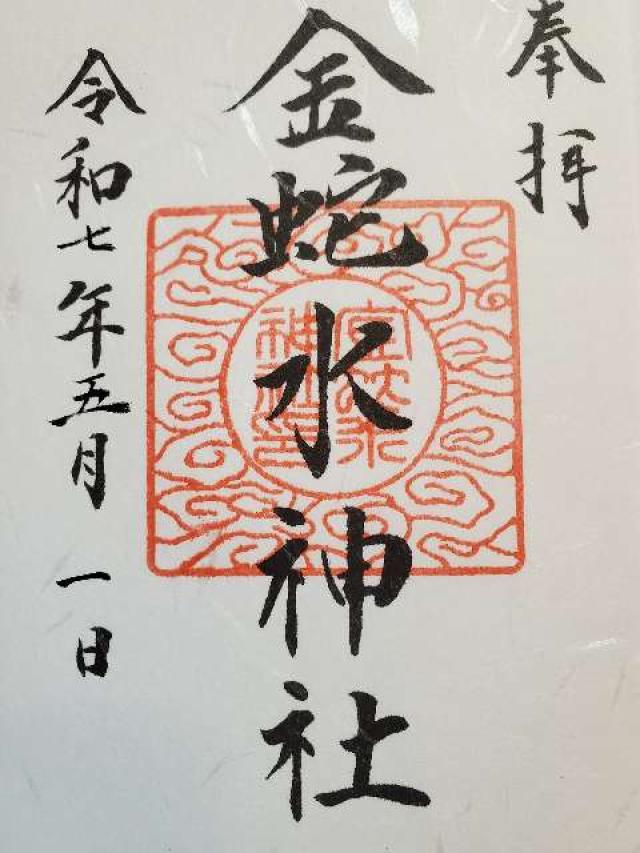 奉拝
金蛇水神社
令和七年五月一日